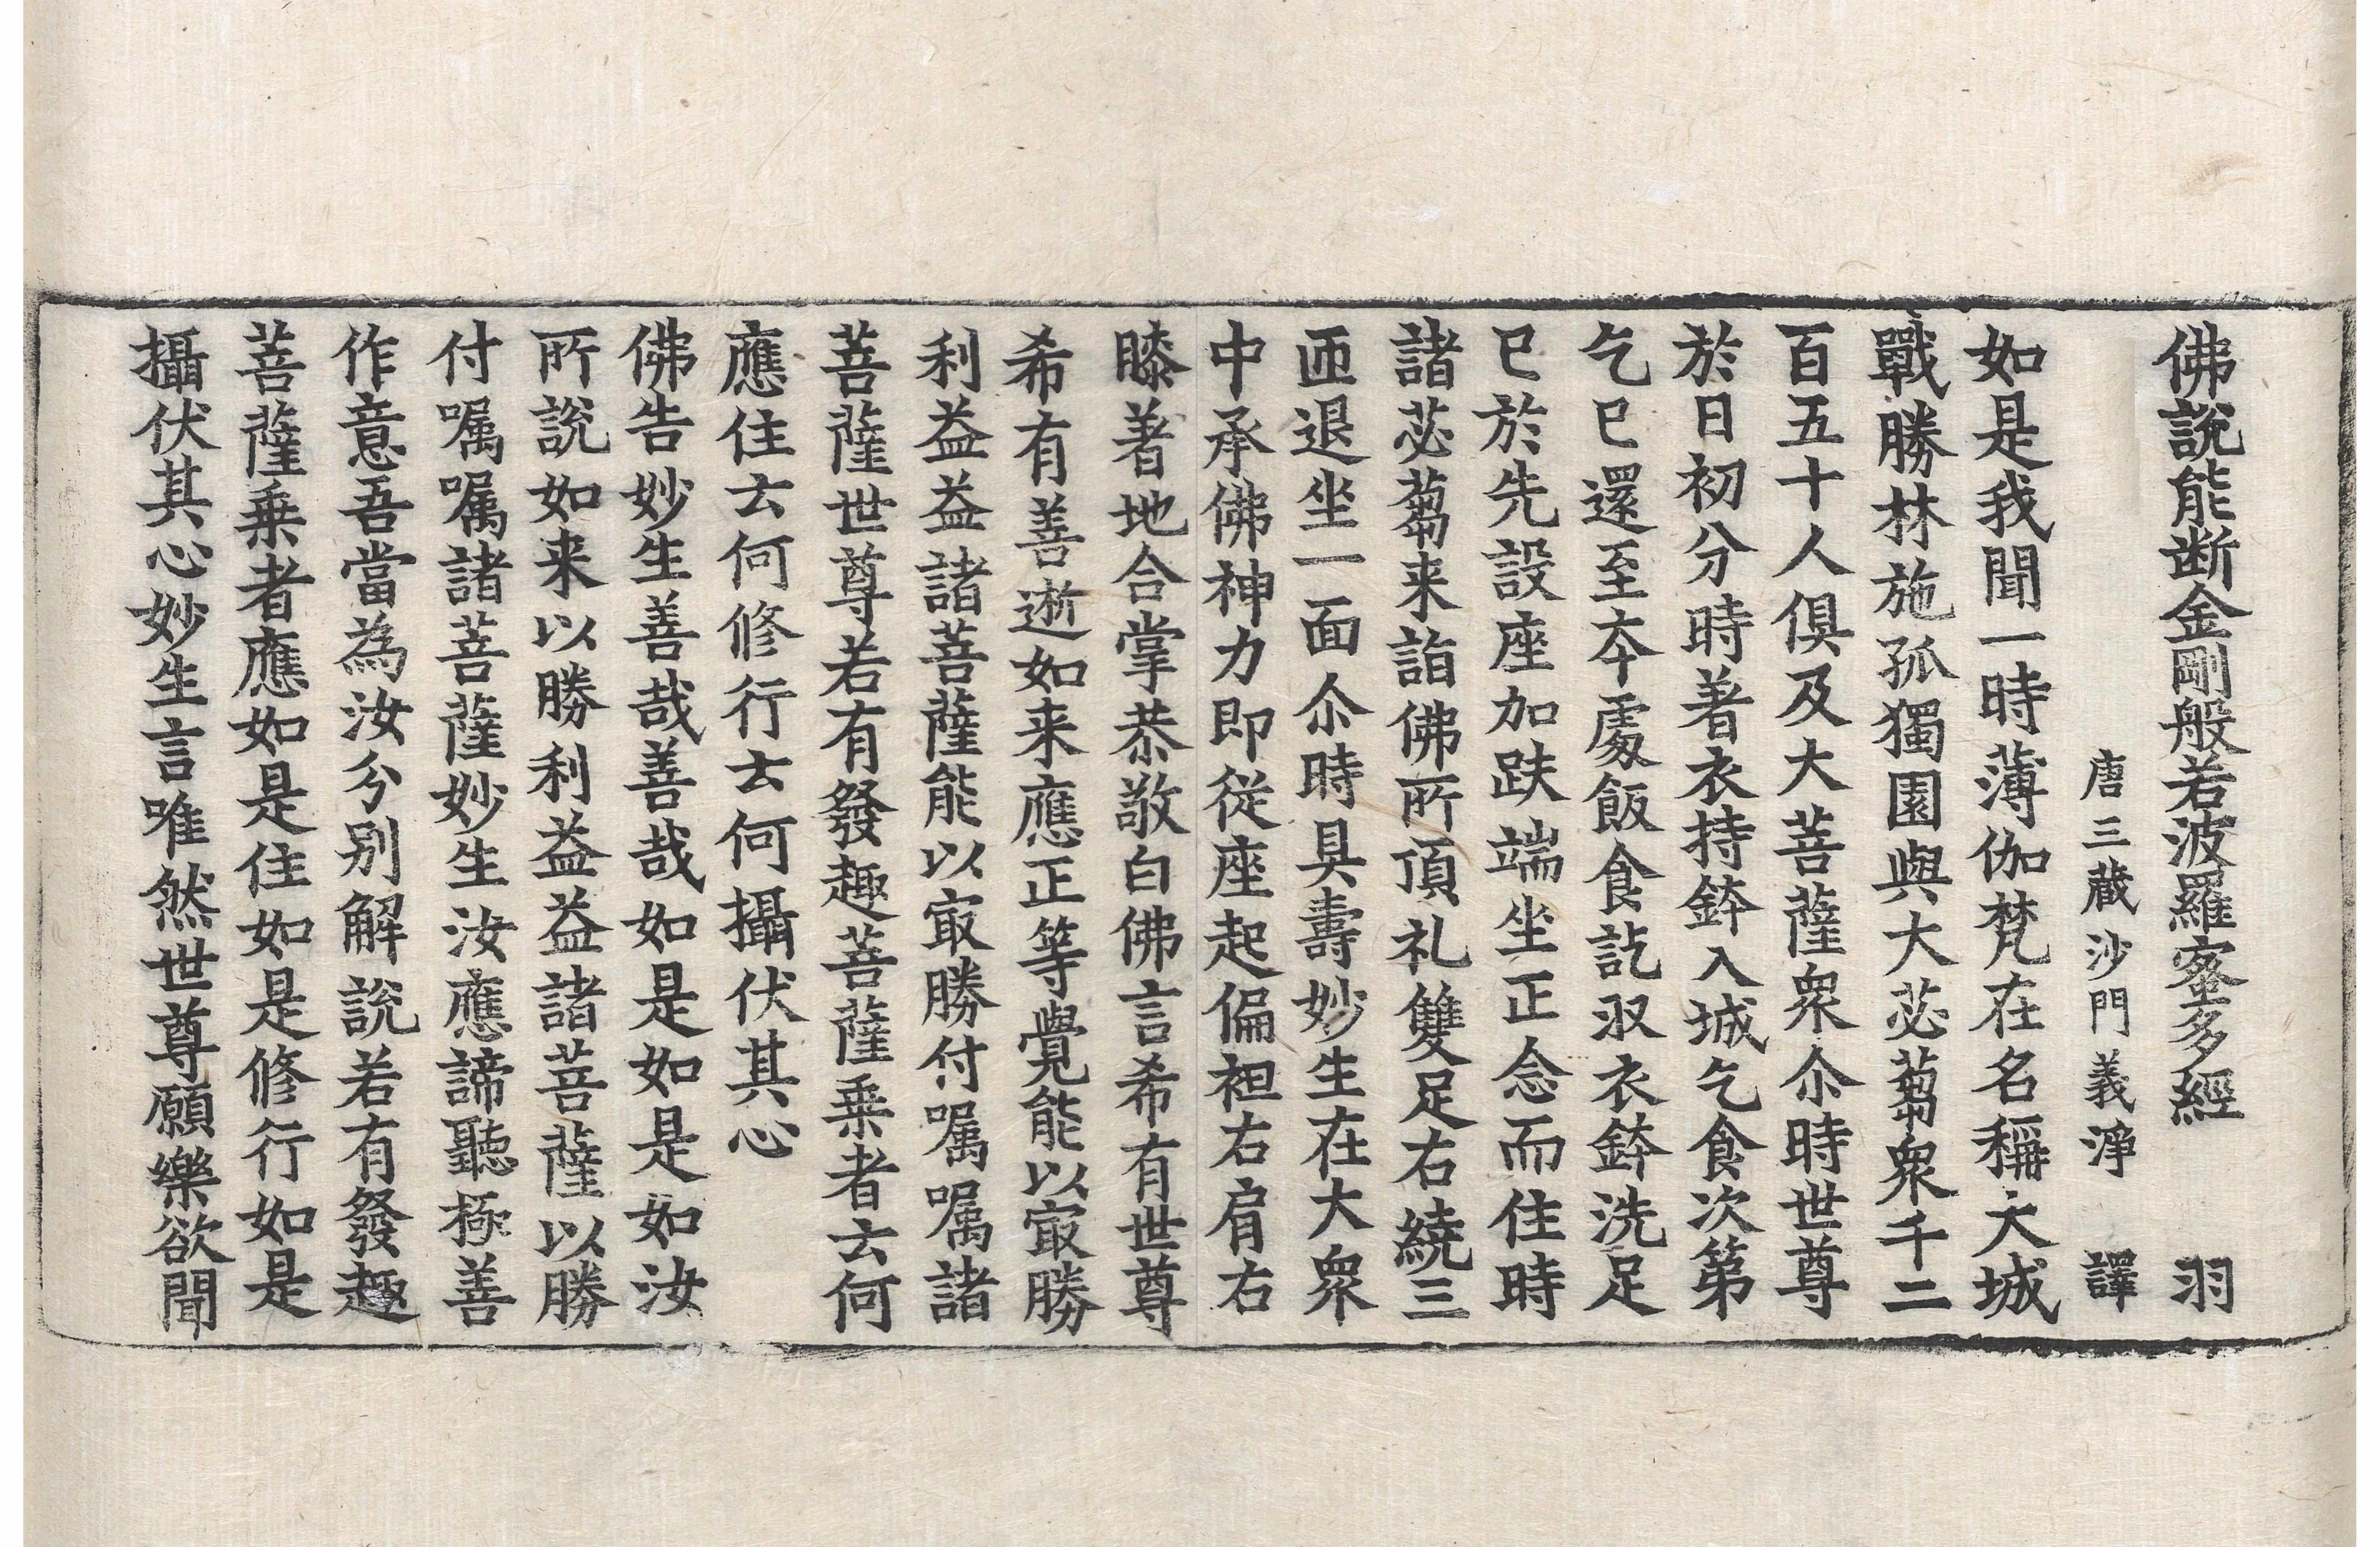 佛說能断金剛般若波羅蜜多經 羽
唐三蔵沙門義淨 譯
如是我聞一時薄伽梵在名稱大城
戰勝林施孤獨園與大苾蒭衆千二
百五十人俱及大菩薩衆尒時世尊
於日初分時著衣持鉢入城乞食次第
乞已還至夲處飯食訖収衣鉢洗足
已於先設座加趺端坐正念而住時
諸苾蒭来詣佛所頂礼雙足右繞三
匝退坐一面尒時具壽妙生在大衆
中承佛神力即從座起偏袒右肩右
膝著地合掌恭敬白佛言希有世尊
希有善逝如来應正等覺能以㝡勝
利益益諸菩薩能以㝡勝付嘱嘱諸
菩薩世尊若有發趣菩薩乗者云何
應住云何修行云何攝伏其心
佛告妙生善哉善哉如是如是如汝
所說如来以勝利益益諸菩薩以勝
付嘱嘱諸菩薩妙生汝應諦聽極善
作意吾當為汝分别解說若有發趣
菩薩乗者應如是住如是修行如是
攝伏其心妙生言唯然世尊願樂欲聞